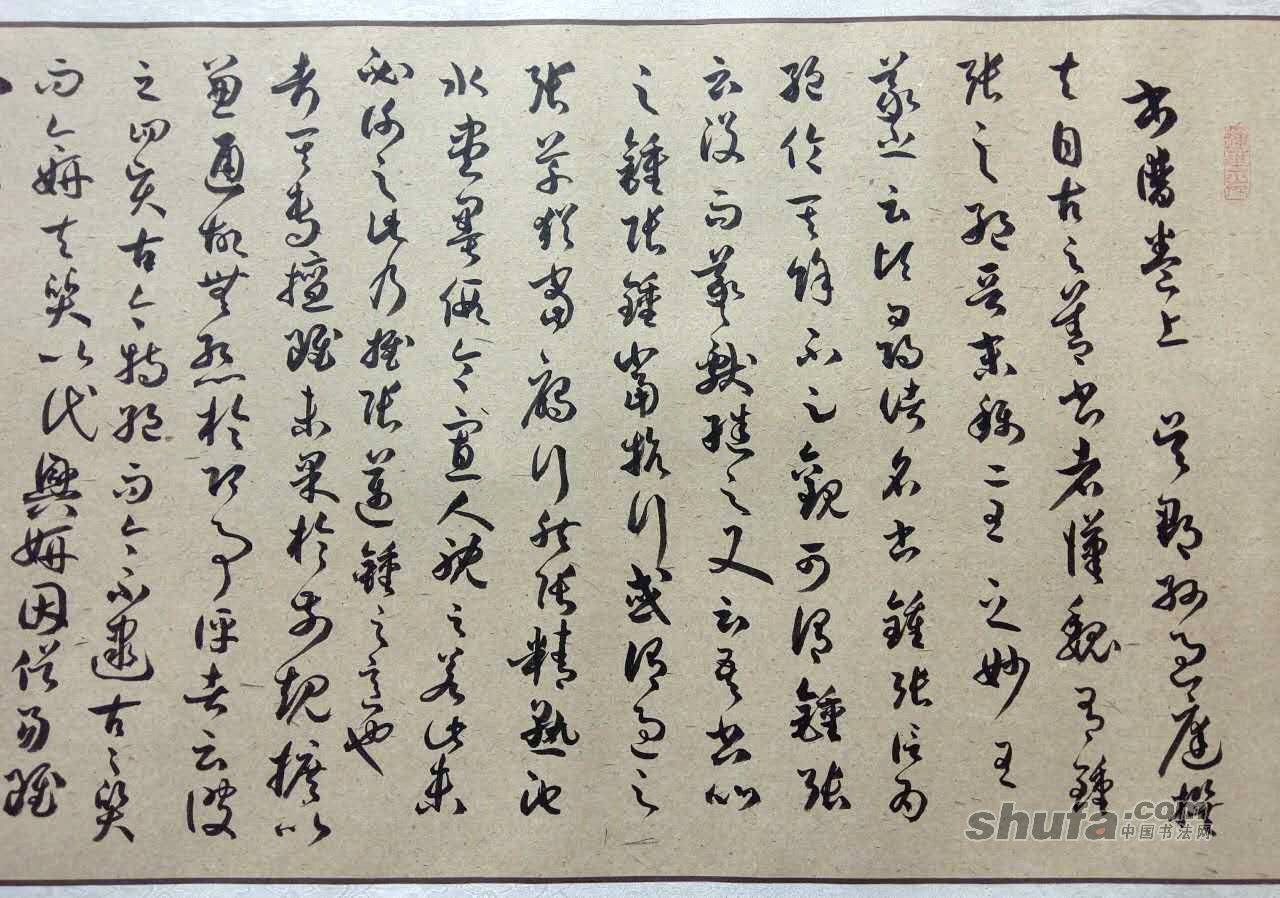 書譜卷上 吳郡孫過庭撰
夫自古之善書者漢魏有鍾
張之絕晉末稱二王之妙王
羲之云頃尋諸名書鍾張信為
絕倫其餘不足觀可謂鍾張
云沒而羲獻繼之又云吾書比
之鍾張鍾當抗行或謂過之
張草猶當雁行然張精熟池
水盡墨假令寡人耽之若此未
必謝之此乃推張邁鍾之意也
考其專擅雖未果於前規摭以
兼通故無慚於即事評者云彼
之四賢古今特絕而今不逮古古質
而今妍夫質以代興妍因俗易雖
shufa.com
中国书法网